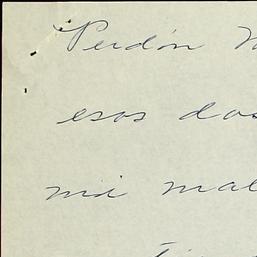 Perdón
esos dos
mi mal